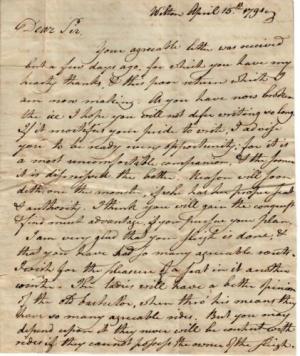 Wilton April 15th 1791
Dear Sir,
Your agreeable letter was received
but a few days ago, for which you have my
hearty thanks, & this poor return which I
am now making. As you have now broken
the ice I hope you will not defer writing so long
If it mortifies your pride to write, I advise
you to be ready every opportunity; for it is
a most uncomfortable companion, & the sooner
it is dismissed the better. Reason will soon
dethrone the monster, if she has her proper seat
& authority. I think you will gain the conquest
& find much advantage if you pursue your plan.
I am very glad that your sleigh is done, &
that you have had so many agreeable
I wish for the pleasure of a seat in it another
winter. The ladies will have a better opinion
of the old bachelor, when thro' his means they
have so many agreeable rides. But you may
depend upon it they never will be content with
rides if they cannot possess the owner of the sleigh.